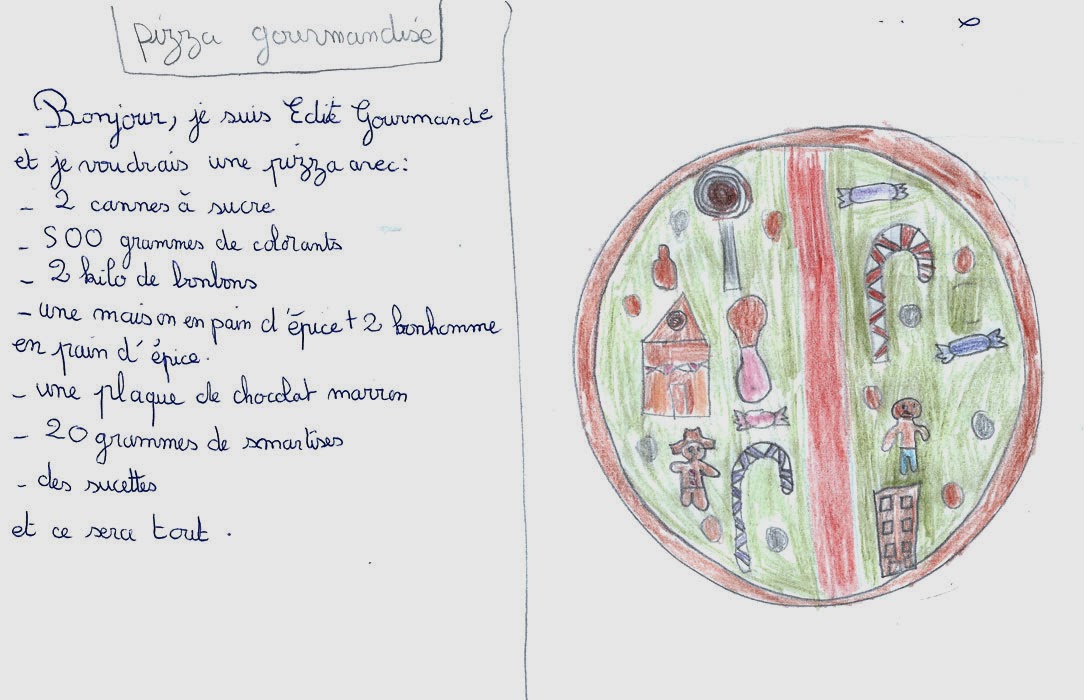 pizza gourmandise
- Bonjour, je suis Edité Gourmande
et je voudrais une pizza avec:
- 2 cannes à sucre
- 500 grammes de colorants
- 2 kilo de bonbons
- une maison en pain d'épice + 2 bonhomme
en pain d'épice.
- une plaque de chocolat marron
- 20 grammes de smartises
- des sucettes
et ce sera tout.